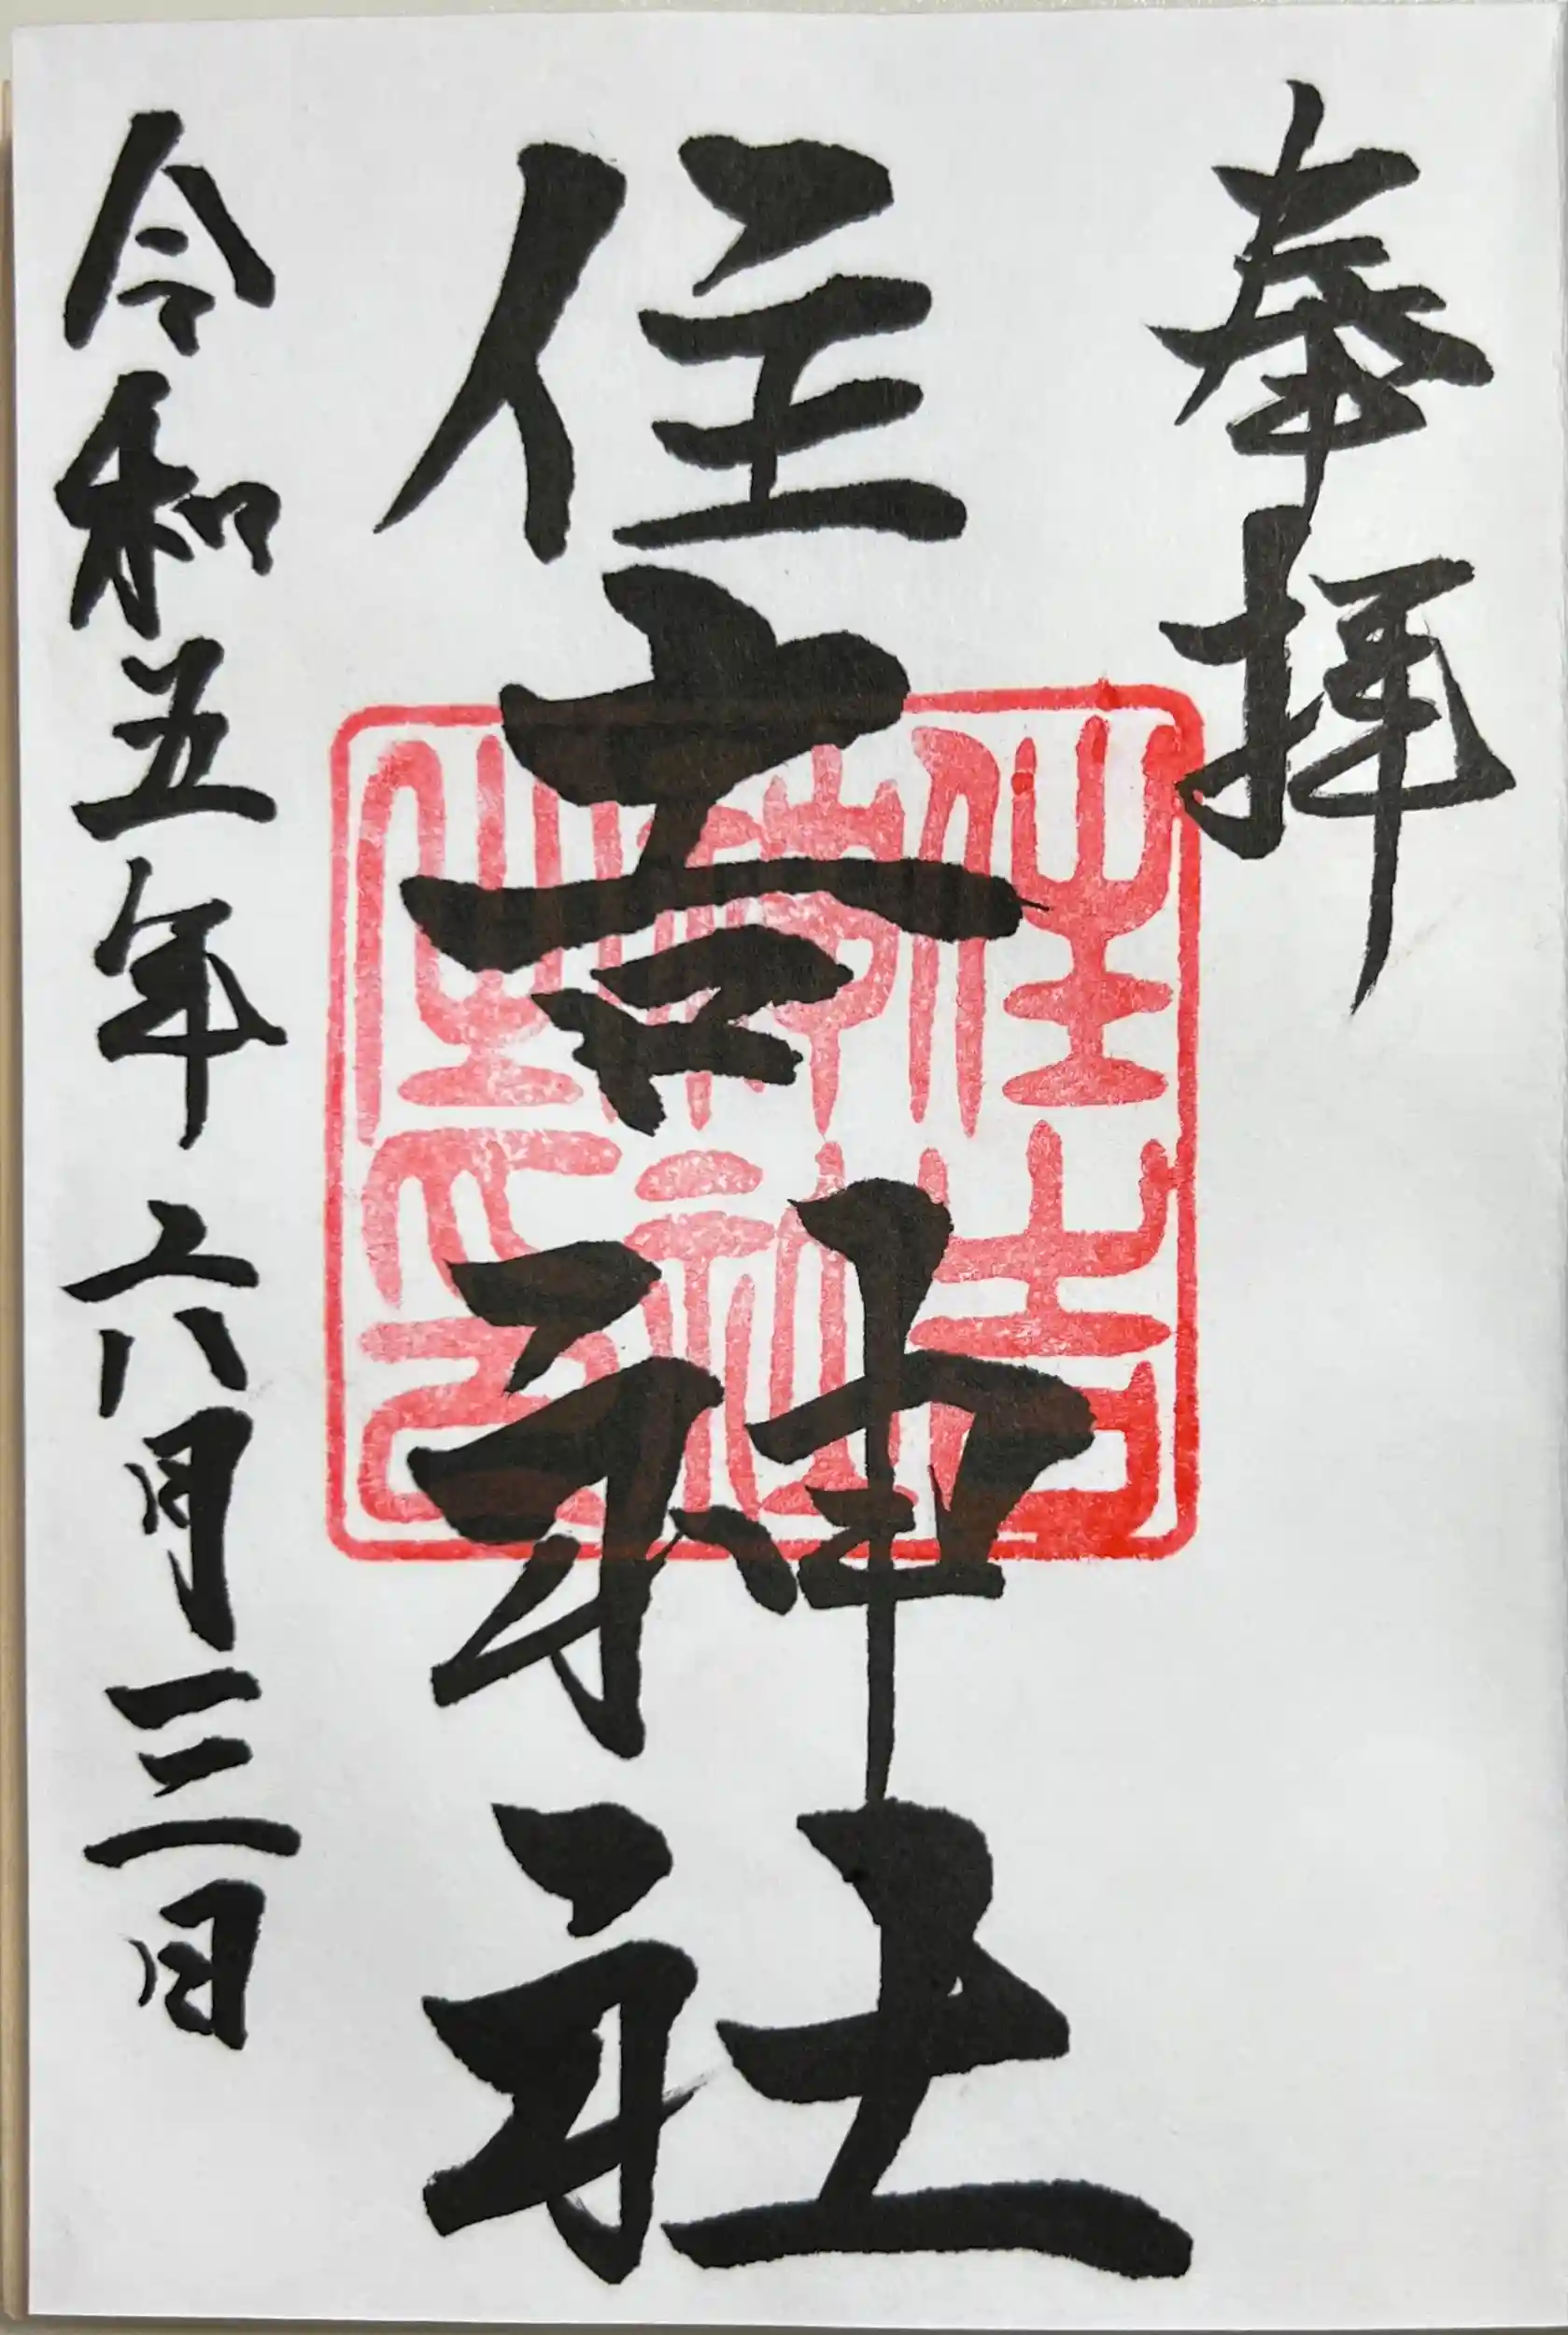 奉拝
住吉神社
住吉神社之印
令和五年六月三日